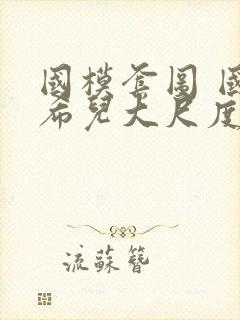 國模套圖 國
希兒大尺度
流蘇簪